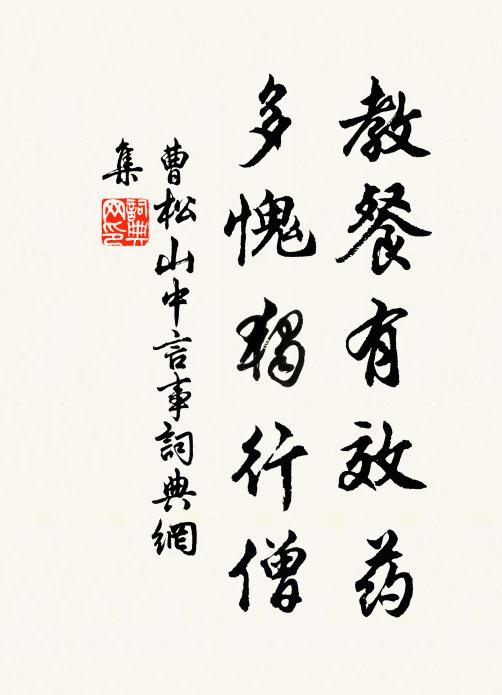 教餐有效药
多愧独行僧
曹松山中言事詞典網
集
詞典网印